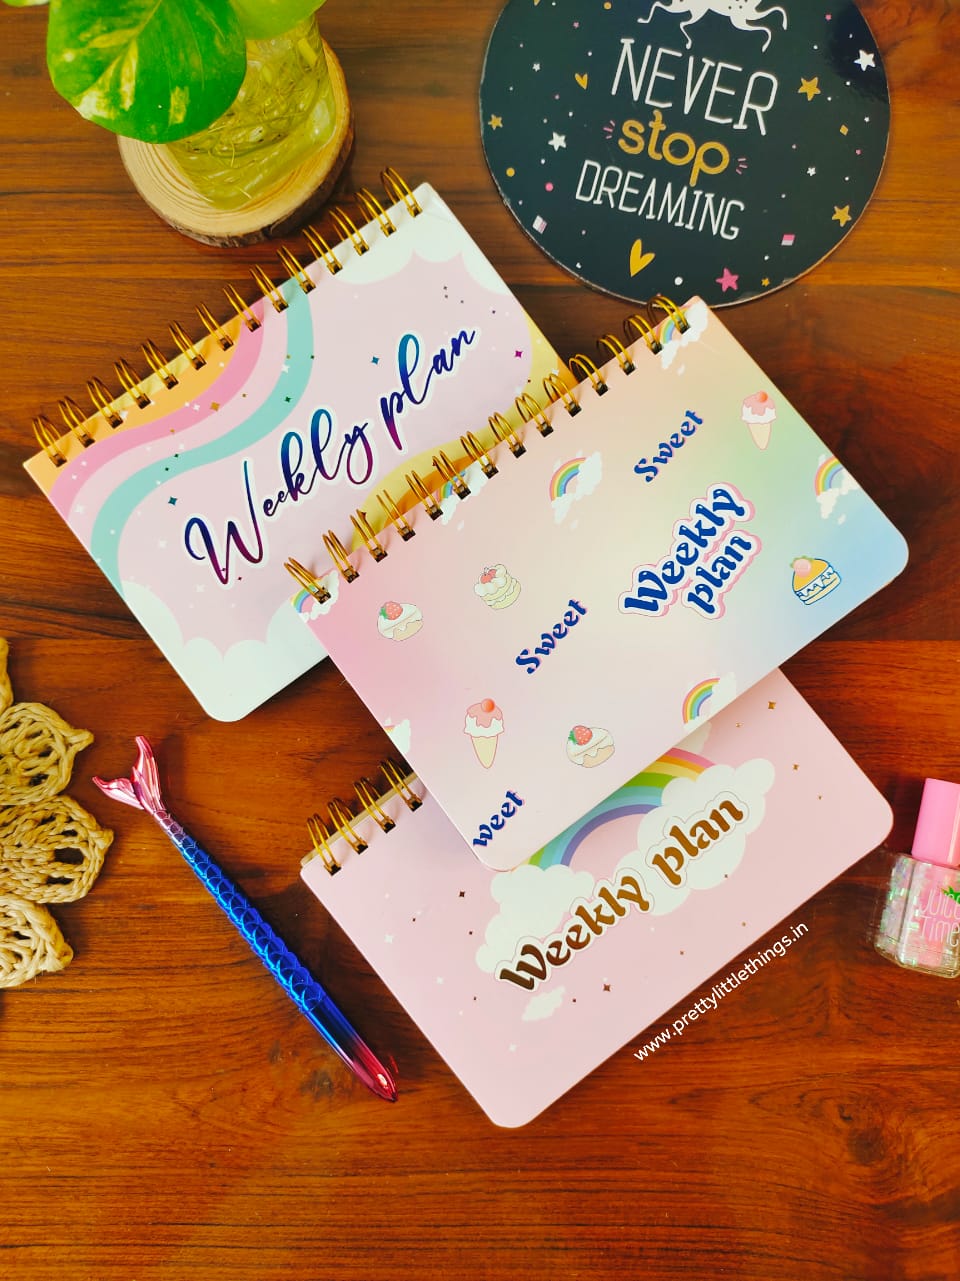 NEVER
stop
DREAMING
Weekly plan
Sweet
Weekly
plan
Sweet
weet
Weekly plan
www.prettylittlethings.in
Juice
Time